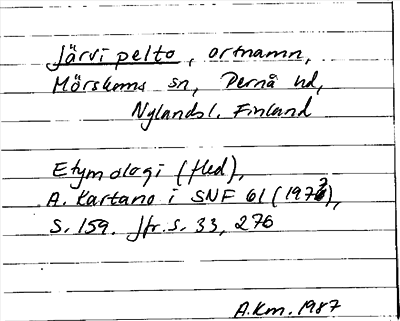 Järvi pelto, ortnamn,
Mörskoms sn, Pernå hd,
Nylandsl. Finland
Etymologi (fled),
A. Kartano i SNF 61 (1973),
S. 159. Jfr. s. 33, 276
A.Km. 1987